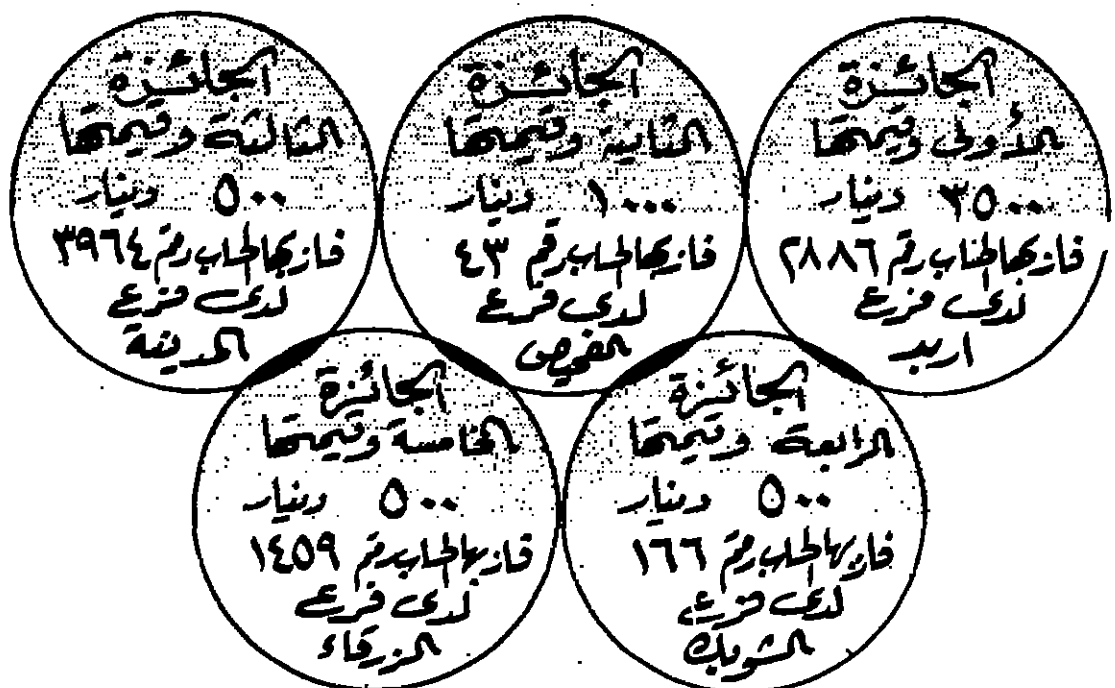 الجائزة
الأولى وقيمتها
٣٥٠٠ دينار
فاز بها الحساب رقم ٢٨٨٦
لدى فرع
اربد
الجائزة
الثانية وقيمتها
١٠٠٠ دينار
فاز بها الحساب رقم ٤٣
لدى فرع
الفحيص
الجائزة
الثالثة وقيمتها
٥٠٠ دينار
فاز بها الحساب رقم ٣٩٦٤
لدى فرع
المدينة
الجائزة
الرابعة وقيمتها
٥٠٠ دينار
فاز بها الحساب رقم ١٦٦
لدى فرع
الشوبك
الجائزة
الخامسة وقيمتها
٥٠٠ دينار
فاز بها الحساب رقم ١٤٥٩
لدى فرع
الزرقاء